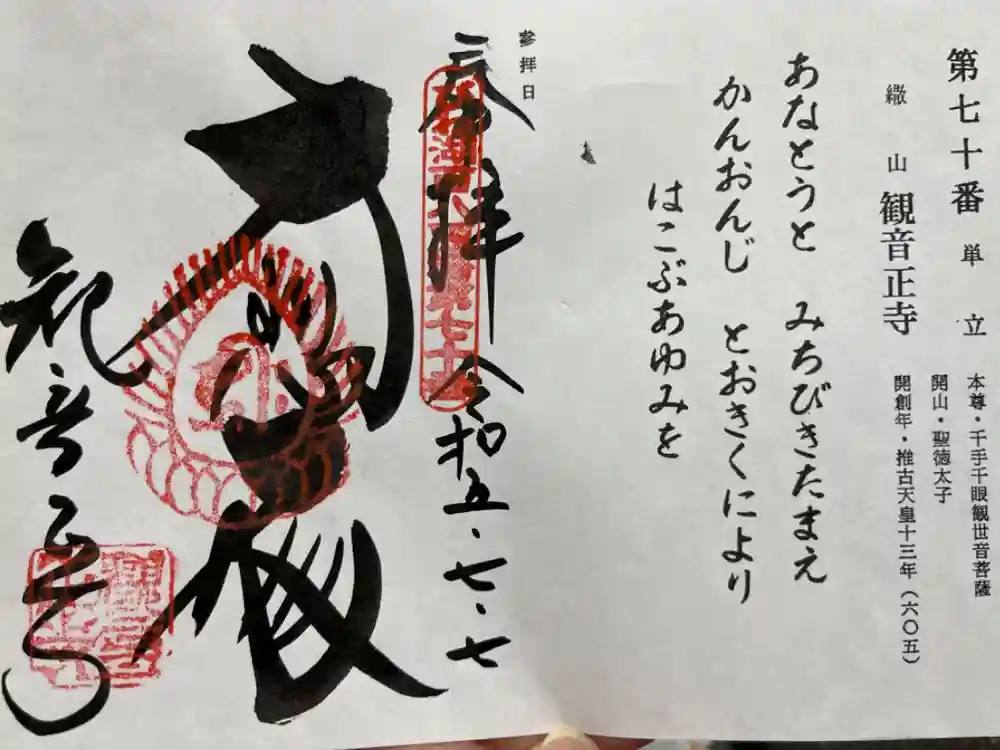 第七十番 単立
繖山 観音正寺
本尊・千手千眼観世音菩薩
開山・聖徳太子
開創年・推古天皇十三年(六〇五)
あなとうと みちびきたまえ
かんおんじ とおきくにより
はこぶあゆみを
参拝日
奉拝 令和五・七・七
観音正寺